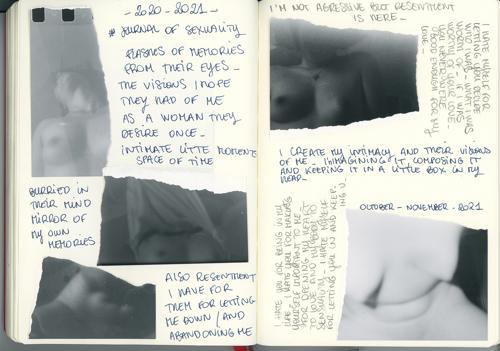 - 2020 - 2021 -
# JOURNAL OF SEXUALITY
FLASHES OF MEMORIES
FROM THEIR EYES -
THE VISIONS I HOPE
THEY HAD OF ME
AS A WOMAN THEY
DESIRE ONCE -
INTIMATE LITTE MOMENTS
SPACE OF TIME
BURRIED IN
THEIR MIND
MIRROR OF
MY OWN
MEMORIES
ALSO RESENTMENT
I HAVE FOR
THEM FOR LETTING
ME DOWN / AND
ABANDONING ME
I'M NOT AGRESSIVE BUT RESENTMENT
IS HERE -
I HATE MYSELF FOR
LETTING YOU DECIDE
WHO I WAS - WHAT I WAS
WORTH OF - IF I WAS
WORTHY OF YOUR LOVE -
GOOD ENOUGH FOR MY
LOVE -
I CREATE MY INTIMACY AND THEIR VISIONS
OF ME - IMAGINING IT, COMPOSING IT
AND KEEPING IT IN A LITTLE BOX IN MY
HEAD -
OCTOBER - NOVEMBER - 2021
I HATE YOU FOR BEING IN MY
LIFE - I HATE YOU FOR MAKING
YOURSELF IMPORTANT TO ME
FOR OPENING MY HEART
TO LOVE AND MY BODY TO
SENSUALITY - I HATE MYSELF
FOR LETTING YOU IN AND KEEP-
ING U -